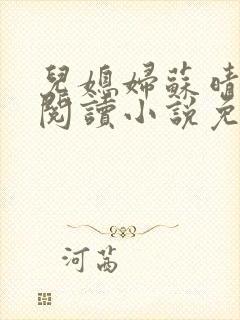 兒媳婦蘇晴
閱讀小說免
河茜